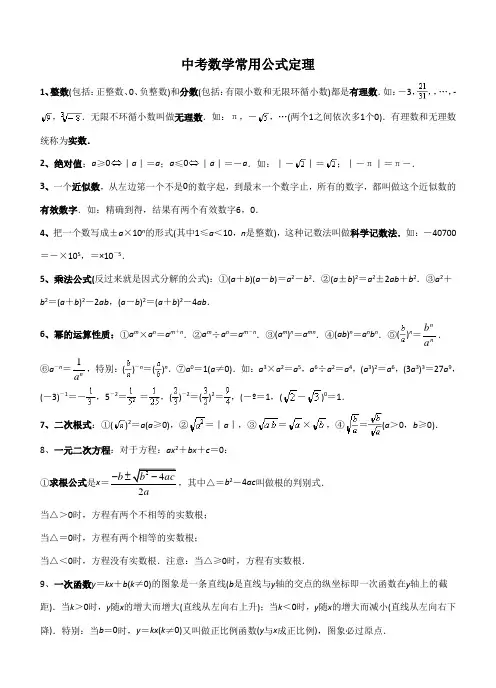 中考数学常用公式定理
1、整数(包括:正整数、0、负整数)和分数(包括:有限小数和无限环循小数)都是有理数.如:-3,21/31,,…,-
√9,∛-8.无限不环循小数叫做无理数.如:π,-√5,…(两个1之间依次多1个0).有理数和无理数
统称为实数.
2、绝对值:a≥0⇔|a|=a;a≤0⇔|a|=-a.如:|-√2|=√2;|-π|=π-.
3、一个近似数,从左边第一个不是0的数字起,到最末一个数字止,所有的数字,都叫做这个近似数的
有效数字.如:精确到得,结果有两个有效数字6,0.
4、把一个数写成±a×10ⁿ的形式(其中1≤a<10,n是整数),这种记数法叫做科学记数法.如:-40700
=-×10⁵,=×10⁻⁵.
5、乘法公式(反过来就是因式分解的公式):①(a+b)(a-b)=a²-b².②(a±b)²=a²±2ab+b².③a²+
b²=(a+b)²-2ab,(a-b)²=(a+b)²-4ab.
6、幂的运算性质:①aᵐ×aⁿ=aᵐ⁺ⁿ.②aᵐ÷aⁿ=aᵐ⁻ⁿ.③(aᵐ)ⁿ=aᵐⁿ.④(ab)ⁿ=aⁿbⁿ.⑤(b/a)ⁿ=bⁿ/aⁿ.
⑥a⁻ⁿ=1/aⁿ,特别:(b/a)⁻ⁿ=(a/b)ⁿ.⑦a⁰=1(a≠0).如:a³×a²=a⁵,a⁶÷a²=a⁴,(a³)²=a⁶,(3a³)³=27a⁹,
(-3)⁻¹=-1/3,5⁻²=1/5²=1/25,(2/3)⁻²=(3/2)²=9/4,(-º=1,(√2-√3)⁰=1.
7、二次根式:①(√a)²=a(a≥0),②√a²=|a|,③√ab=√a×√b,④√(b/a)=√b/√a(a>0,b≥0).
8、一元二次方程:对于方程:ax²+bx+c=0:
①求根公式是x=(-b±√(b²-4ac))/2a,其中△=b²-4ac叫做根的判别式.
当△>0时,方程有两个不相等的实数根;
当△=0时,方程有两个相等的实数根;
当△<0时,方程没有实数根.注意:当△≥0时,方程有实数根.
9、一次函数y=kx+b(k≠0)的图象是一条直线(b是直线与y轴的交点的纵坐标即一次函数在y轴上的截
距).当k>0时,y随x的增大而增大(直线从左向右上升);当k<0时,y随x的增大而减小(直线从左向右下
降).特别:当b=0时,y=kx(k≠0)又叫做正比例函数(y与x成正比例),图象必过原点.